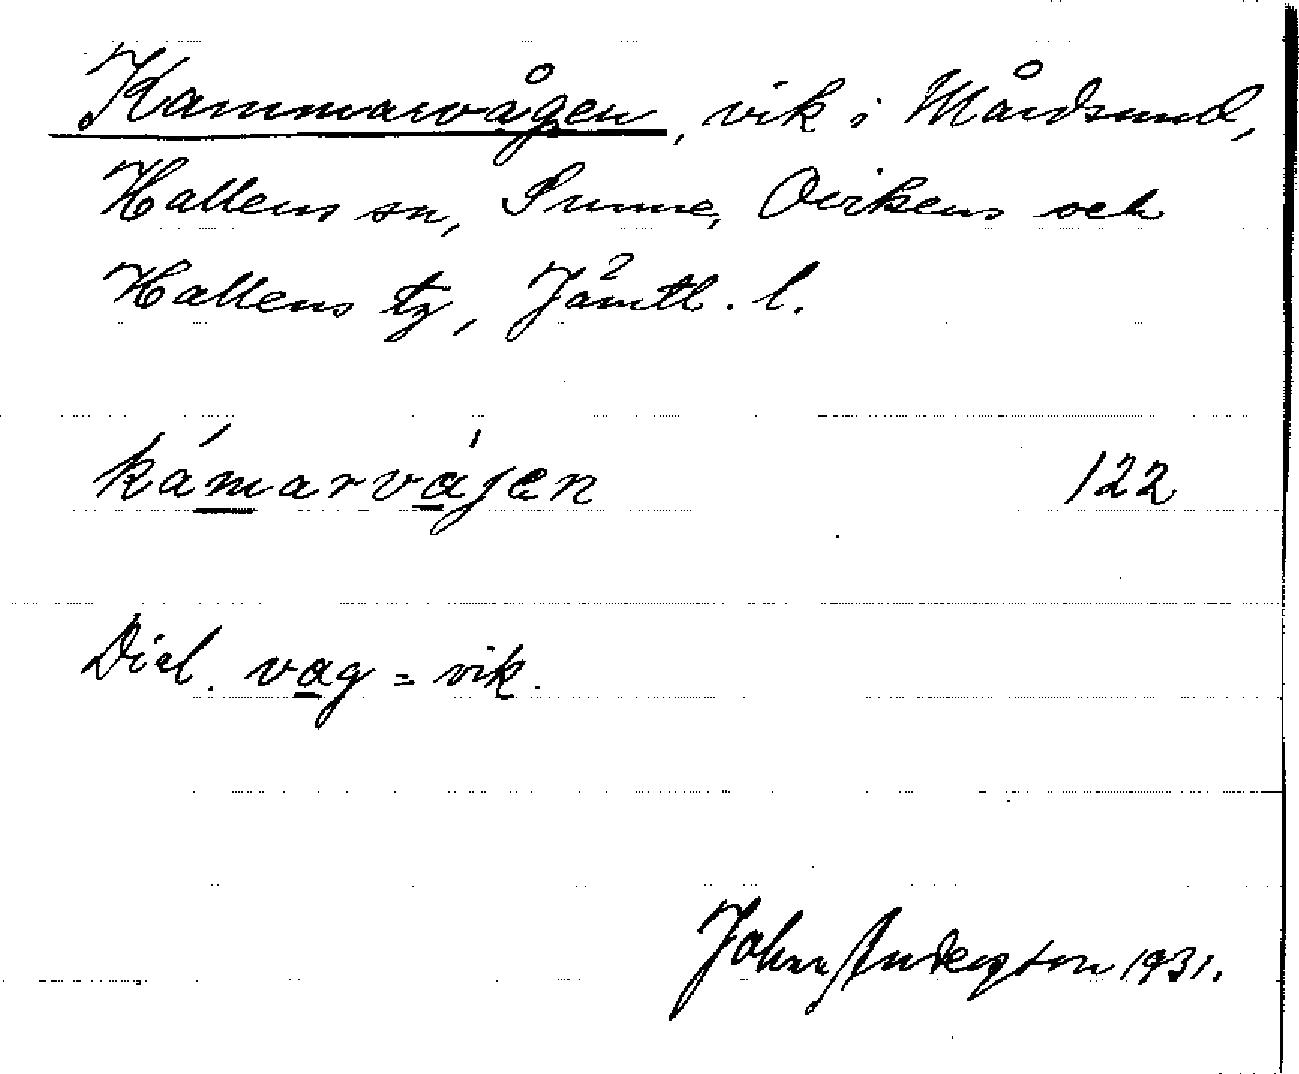 Kammarvågen, vik i Mårdsund,
Hallens sn, Sunne, Ovikens och
Hallens tg, Jämtl. l.
kámarvágen 122
Dial. vag = vik.
John Andersson 1931.